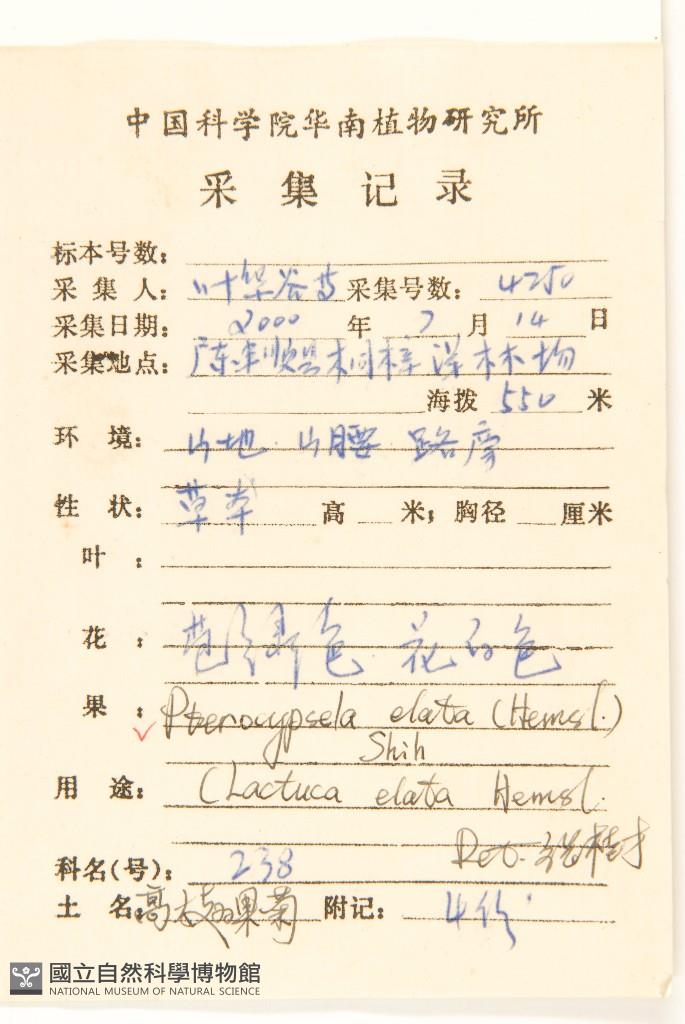 中国科学院华南植物研究所
采集记录
标本号数:
采集人: 叶华谷等 采集号数: 4250
采集日期: 2000 年 7 月 14 日
采集地点: 广东 林场
海拨 550 米
环境: 山地 山腰 路旁
性状: 草本 高 米; 胸径 厘米
叶:
花: 苞绿色 花白色
果: Pterocypsela elata (Hemsl.)
Shih
用途: (Lactuca elata Hemsl.
Det.
科名(号): 238
土名: 高 翅果菊 附记: 4份
國立自然科學博物館
NATIONAL MUSEUM OF NATURAL SCIENCE